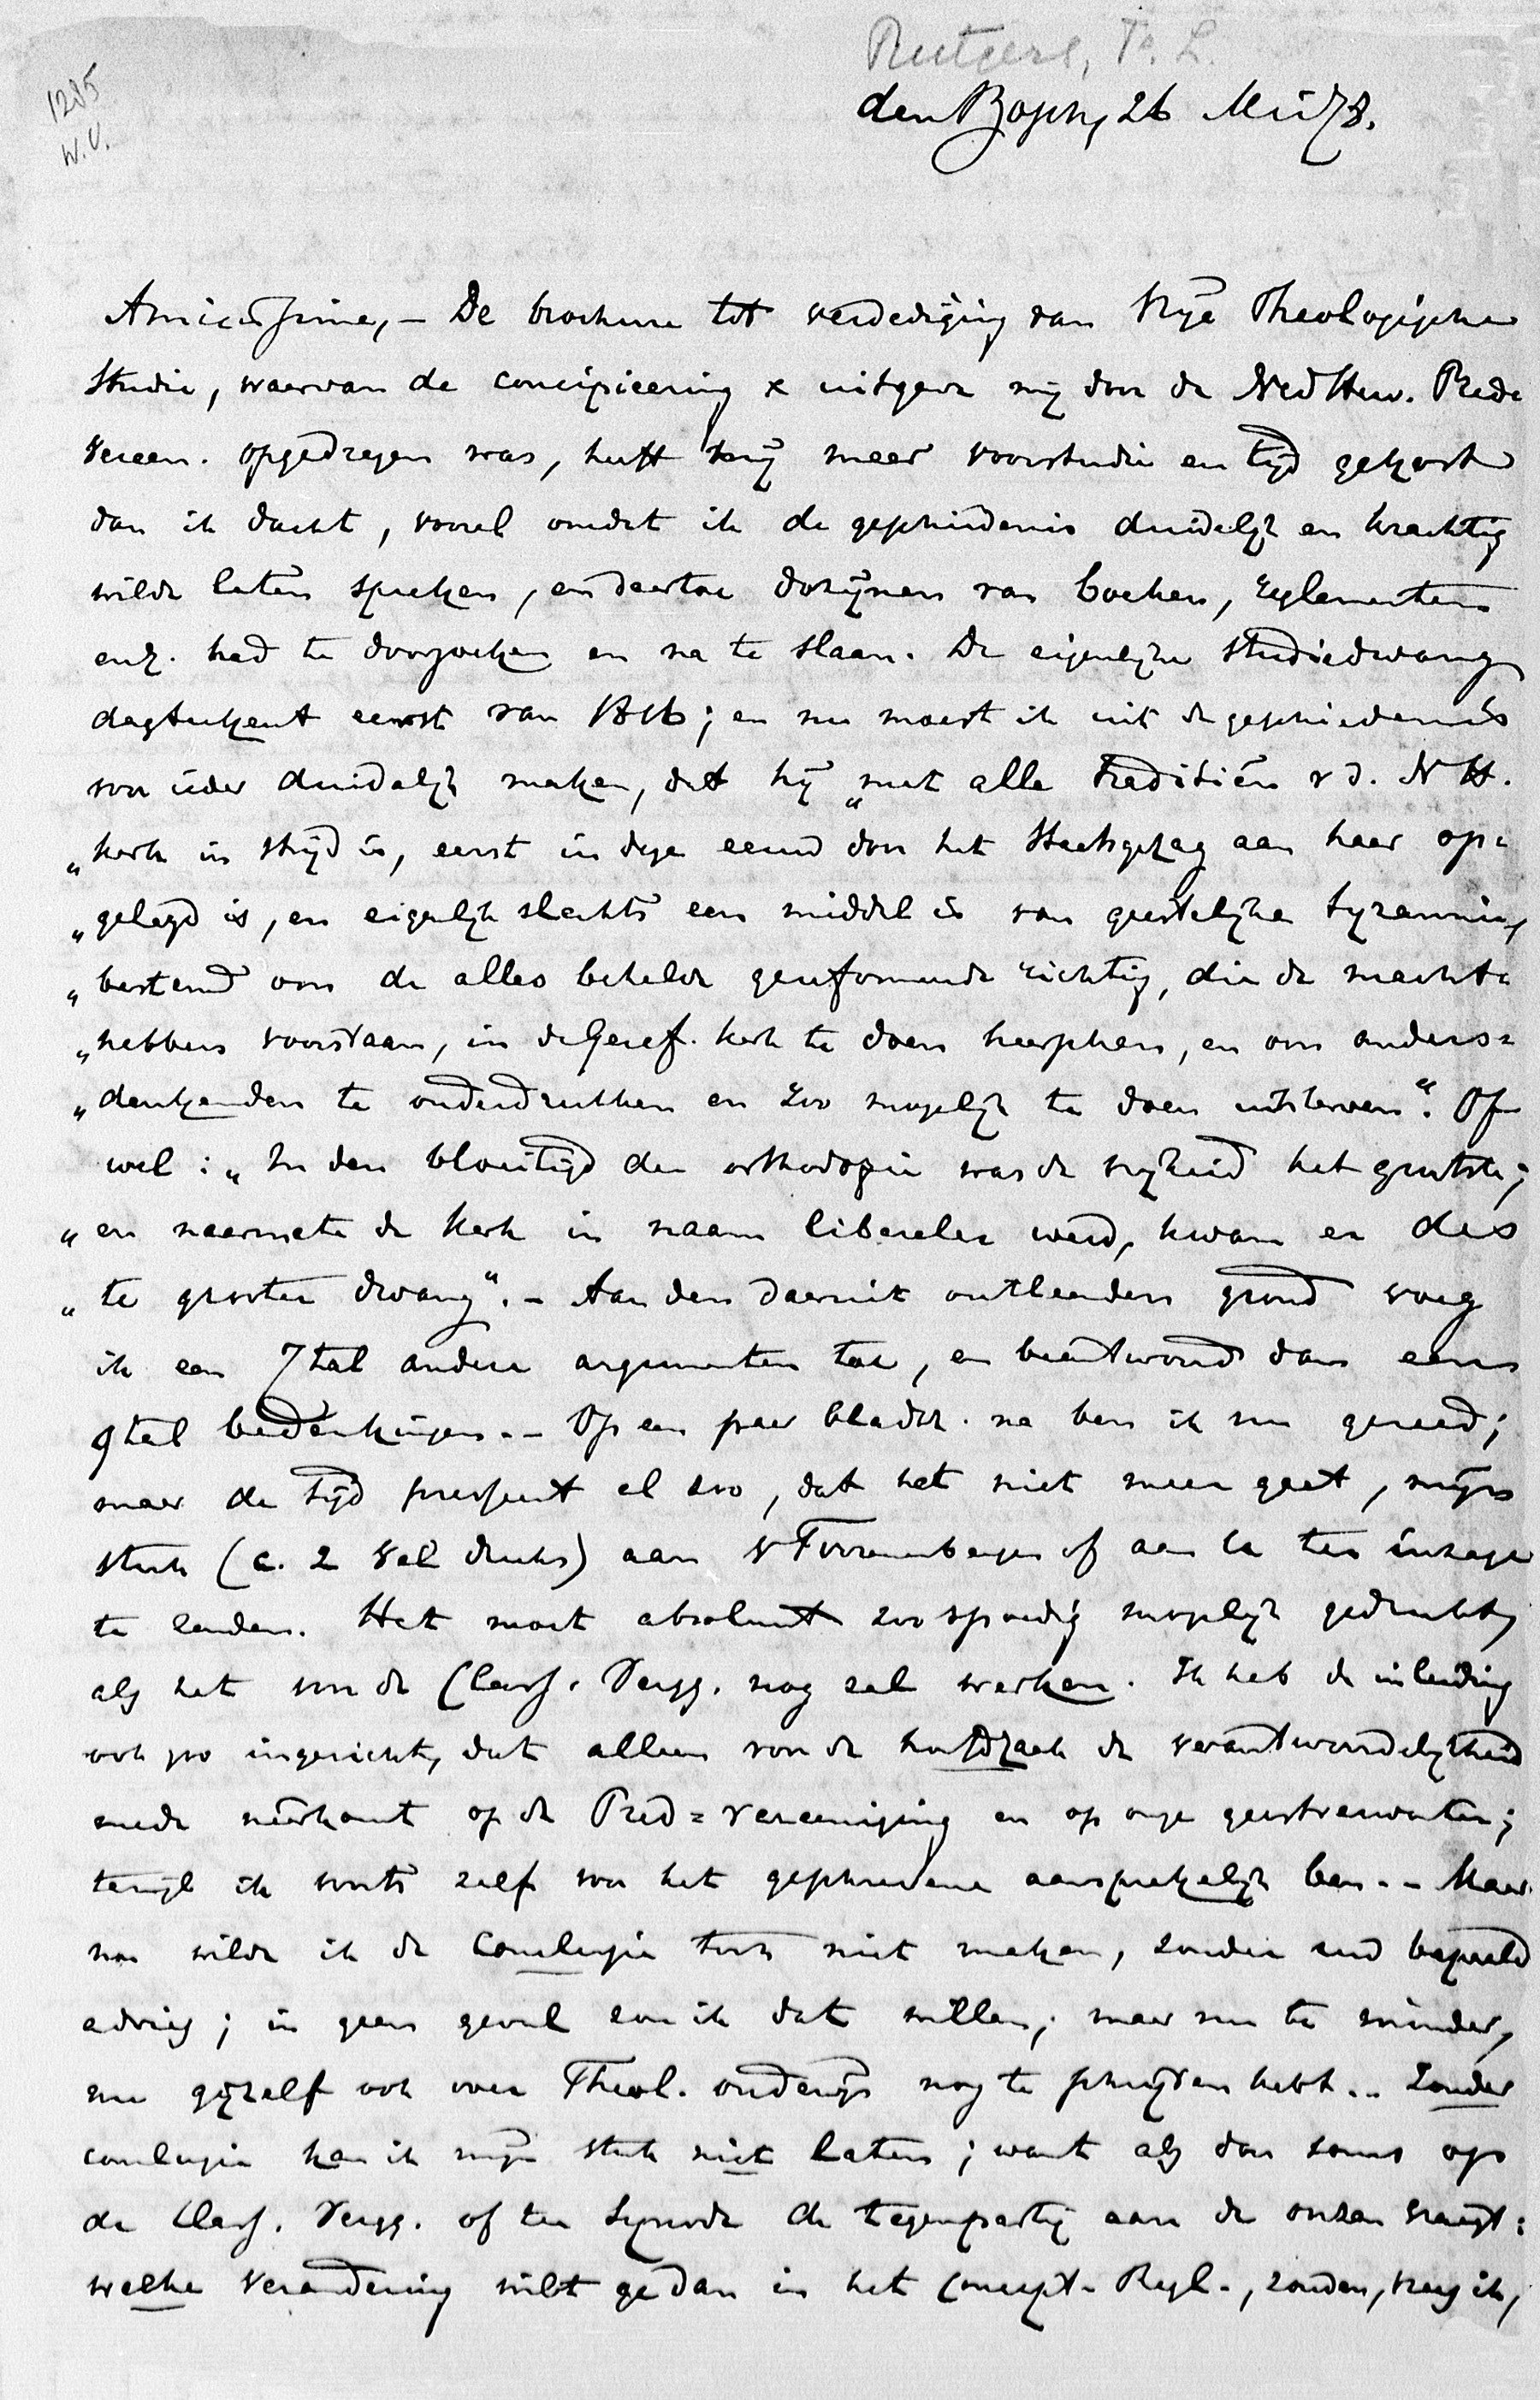 Rutgers, F. L.
1285
W.V.
den Bosch, 26 Mei/78.
Amicissime, – De brochure tot verdediging van Vrije Theologische
Studie, waarvan de concipieering & uitgave mij door de Ned Herv. Pred=
Vereen. opgedragen was, heeft mij meer voorstudie en tijd gekost
dan ik dacht, vooral omdat ik de geschiedenis duidelijk en krachtig
wilde laten spreken, en daartoe dozijnen van boeken, reglementen
enz. had te doorzoeken en na te slaan. De eigenlijke studiedwang
dagteekent eerst van 1816; en nu moest ik uit de geschiedenis
voor ieder duidelijk maken, dat hij „met alle traditiën v d. N H.
„kerk in strijd is, eerst in deze eeuw door het Staatsgezag aan haar op=
„gelegd is, en eigenlijk slechts een middel is van geestelijke tyrannie,
„bestemd om de alles behalve gereformeerde richting, die de macht=
„hebbers voorstaan, in de Geref. kerk te doen heerschen, en om anders=
„denkenden te onderdrukken en zoo mogelijk te doen uitsterven“. Of
wel: „In den bloeitijd der orthodoxie was de vrijheid het grootste;
„en naarmate de Kerk in naam liberaler werd, kwam er des
„te grooter dwang“. – Aan den daaruit ontleenden grond voeg
ik een 7tal andere argumenten toe, en beantwoord dan een
9tal bedenkingen. – Op een paar bladz. na ben ik nu gereed;
maar de tijd presseert al zoo, dat het niet meer gaat, mijn
stuk (c. 2 vel druks) aan v Toorenenbergen of aan U ter inzage
te zenden. Het moet absoluut zoo spoedig mogelijk gedrukt,
als het voor de Class. Vergg. nog zal werken. Ik heb de inleiding
ook zoo ingericht, dat alleen voor de hoofdzaak de verantwoordelijkheid
mede neêrkomt op de Pred=vereeniging en op onze geestverwanten;
terwijl ik voorts zelf voor het geschrevene aansprakelijk ben. – Maar
nu wilde ik de conclusie toch niet maken, zonder uw bepaald
advies; in geen geval zou ik dat willen; maar nu te minder,
nu gijzelf ook over Theol. onderwijs nog te schrijven hebt. – Zonder
conclusie kan ik mijn stuk niet laten; want als dan soms op
de Class. Vergg. of ter Synode de tegenpartij aan de onzen vraagt:
welke verandering wilt ge dan in het Concept-Regl., zouden, vrees ik,